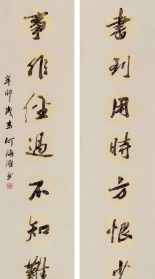 書到用時方恨少
事非經過不知難
辛卯歲末何海霞書